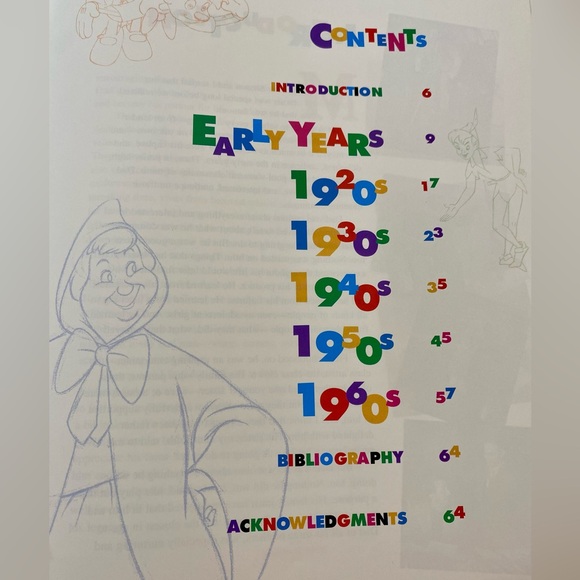 CONTENTS
INTRODUCTION 6
EARLY YEARS 9
1920s 17
1930s 23
1940s 35
1950s 45
1960s 57
BIBLIOGRAPHY 64
ACKNOWLEDGMENTS 64